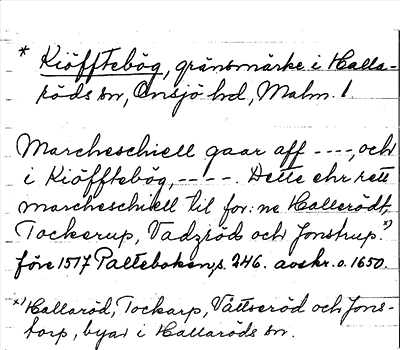 * Kiöfftebög, gränsmärke i Halla-
röds sn, Onsjö hd, Malm. l
Marcheschiell gaar aff ----, och
i Kiöfftebög, ----. Dette ehr rett
marcheschiell til for:ne Hallerödt,
Tockerup, Vadzröd och Jonstrup.*)
före 1517 Palteboken, s. 246. avskr. o. 1650.
*) Hallaröd, Tockarp, Vättseröd och Jons-
torp, byar i Hallaröds sn.